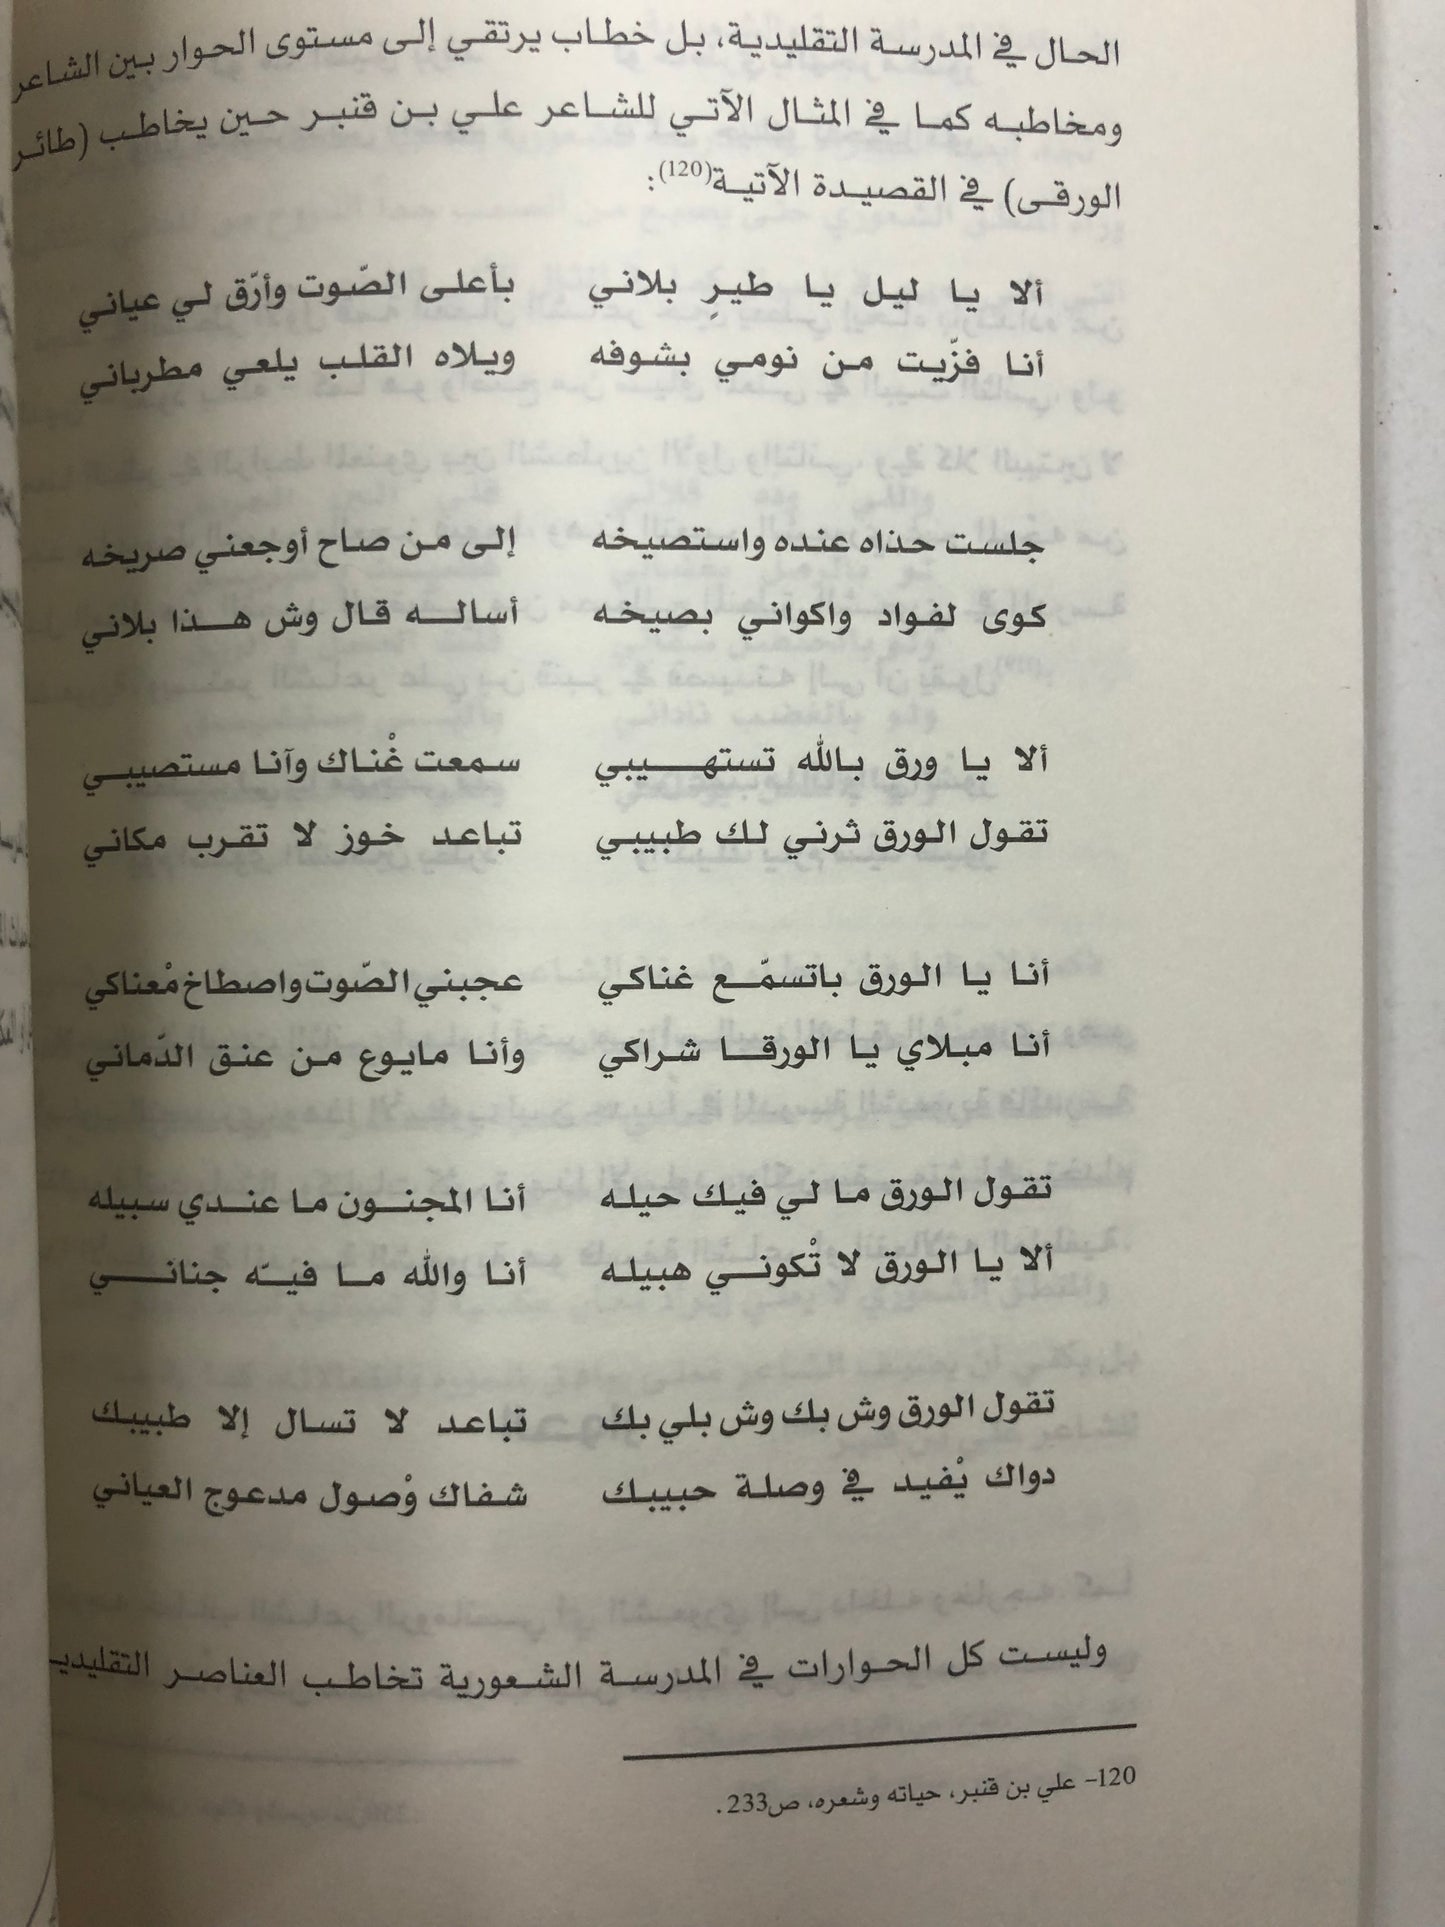 الحال في المدرسة التقليدية، بل خطاب يرتقي إلى مستوى الحوار بين الشاعر
ومخاطبه كما في المثال الآتي للشاعر علي بن قنبر حين يخاطب (طائر
الورقى) في القصيدة الآتية(120):
ألا يا ليل يا طيرٍ بلاني بأعلى الصّوت وأرّق لي عياني
أنا فزّيت من نومي بشوفه ويلاه القلب يلعي مطرباني
جلست حذاه عنده واستصيخه إلى من صاح أوجعني صريخه
كوى لفواد واكواني بصيخه أساله قال وش هذا بلاني
ألا يا ورق بالله تستهيبي سمعت غْناك وآنا مستصيبي
تقول الورق ثرني لك طبيبي تباعد خوز لا تقرب مكاني
أنا يا الورق باتسمّع غناكي عجبني الصّوت واصطاخ مْعناكي
أنا مبلاي يا الورقا شراكي وأنا مايوع من عنق الدّماني
تقول الورق ما لي فيك حيله أنا المجنون ما عندي سبيله
ألا يا الورق لا تْكوني هبيله أنا والله ما فيـّه جناني
تقول الورق وش بك وش بلي بك تباعد لا تسال إلا طبيبك
دواك يْفيد في وصلة حبيبك شفاك وْصول مدعوج العياني
وليست كل الحوارات في المدرسة الشعورية تخاطب العناصر التقليديـ
120- علي بن قنبر، حياته وشعره، ص233.